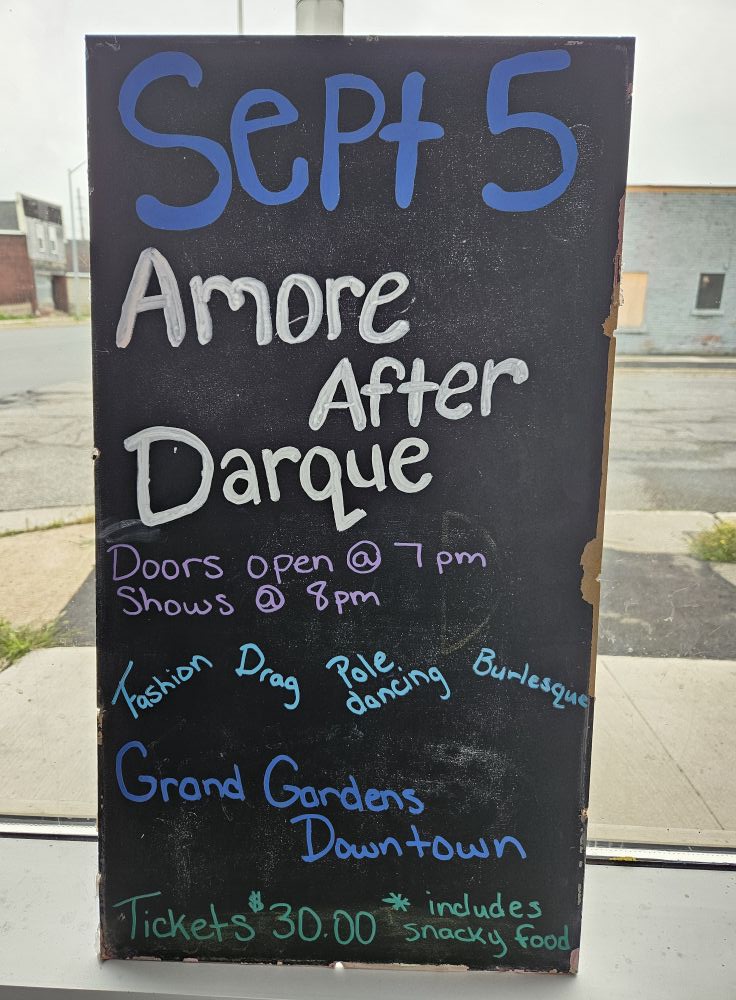 Sept 5
Amore
After
Darque
Doors open @ 7pm
Shows @ 8pm
Fashion Drag Pole dancing Burlesque
Grand Gardens
Downtown
Tickets $30.00 * includes
snacky food